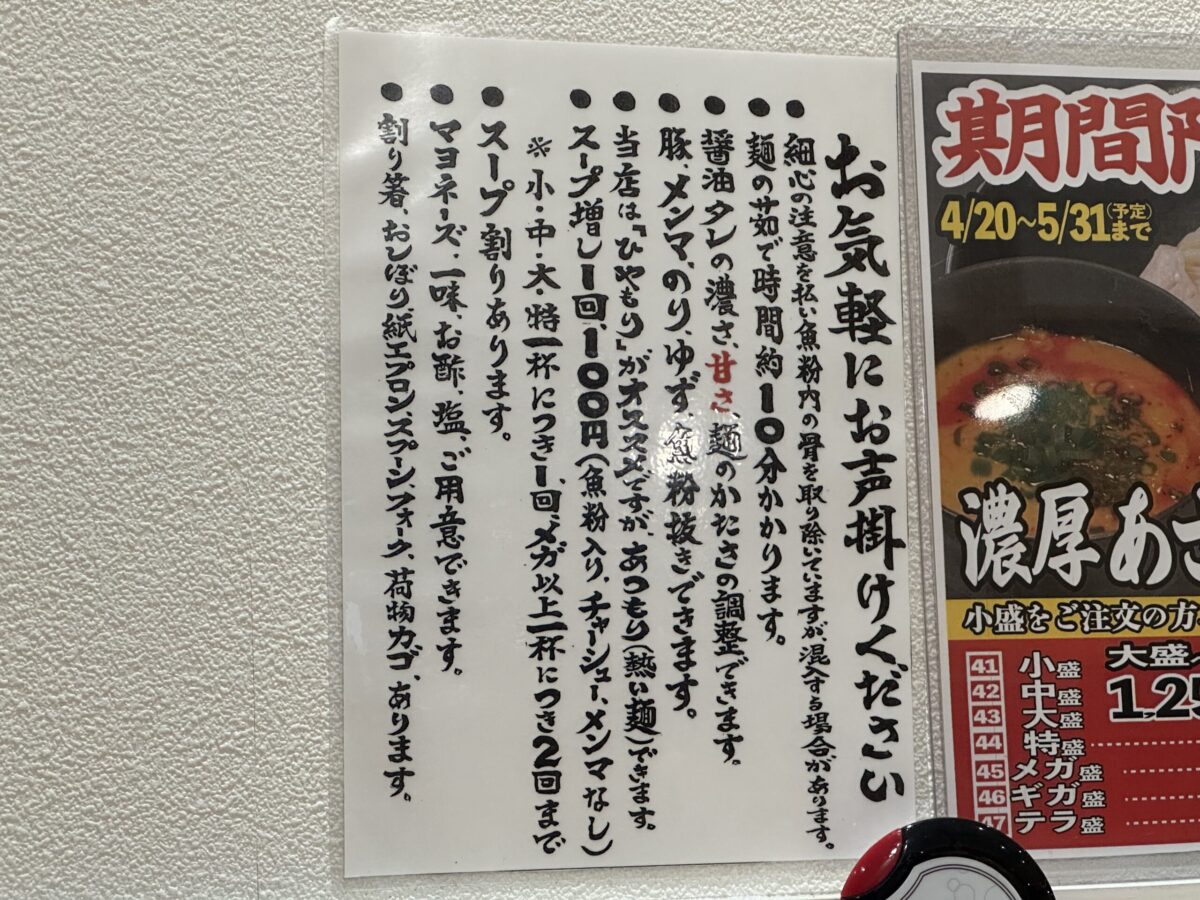 お気軽にお声掛けください
● 細心の注意を払い魚粉内の骨を取り除いていますが、混入する場合があります。
● 麺の茹で時間約10分かかります。
● 醤油タレの濃さ、甘さ、麺のかたさの調整できます。
● 豚、メンマ、のり、ゆず、魚粉抜きできます。
● 当店は「ひやもり」がオススメですが、あつもり(熱い麺)できます。
● スープ増し1回、100円(魚粉入り、チャーシュー、メンマなし)
※小・中・大・特一杯につき1回、メガ以上一杯につき2回まで
● スープ割りあります。
● マヨネーズ、一味、お酢、塩、ご用意できます。
● 割り箸、おしぼり、紙エプロン、スプーン、フォーク、荷物カゴ、あります。
期間
4/20~5/31(予定)まで
濃厚あ
小盛をご注文の方
大盛
1,25
41 小盛
42 中盛
43 大盛
44 特盛
45 メガ盛
46 ギガ盛
47 テラ盛